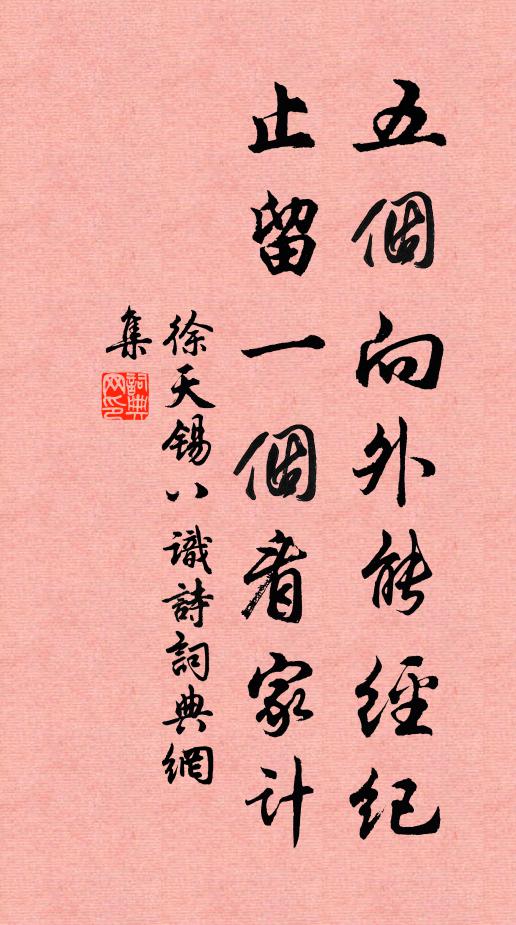 五個向外能經紀
止留一個看家計
徐天錫八識詩詞典網
集
詞典
网印